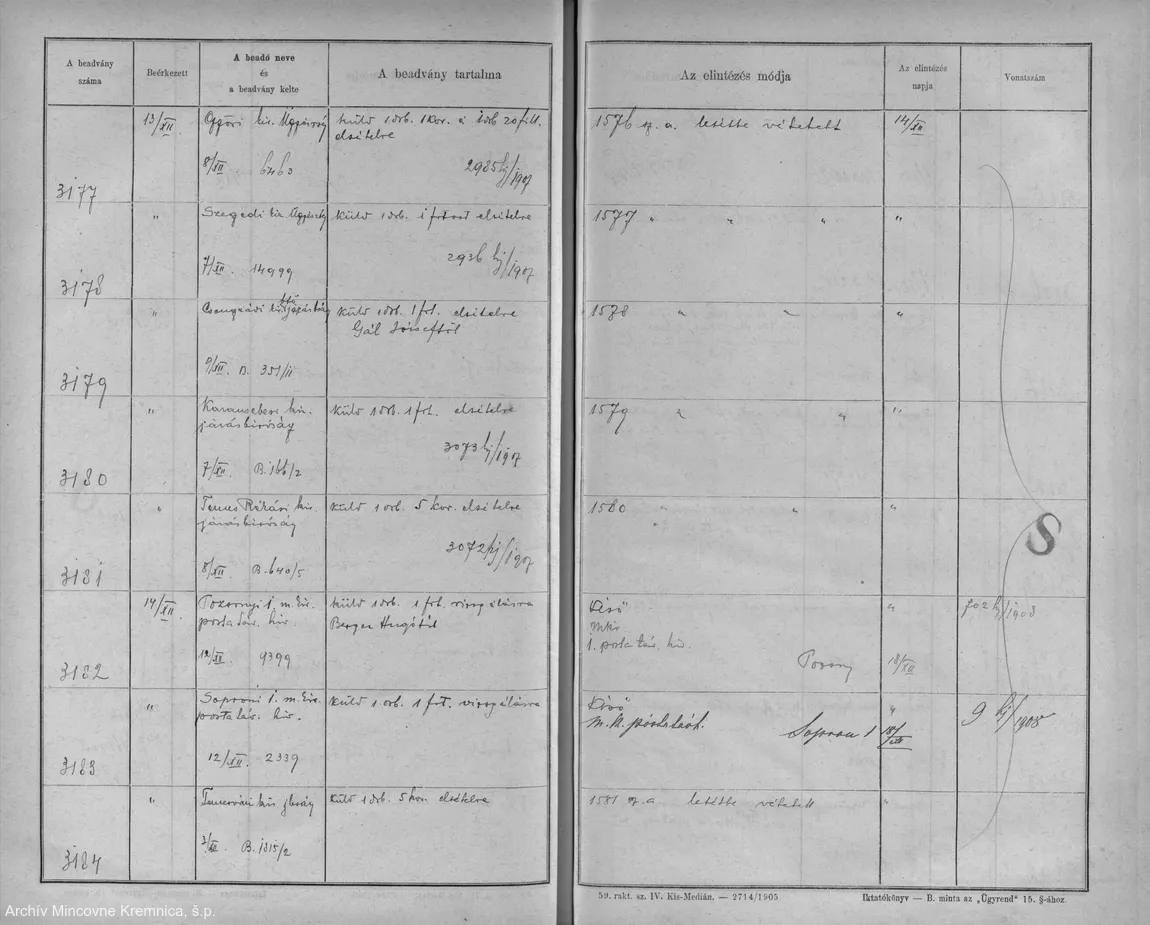 A beadvány száma
Beérkezett
A beadó neve és a beadvány kelte
A beadvány tartalma
Az elintézés módja
Az elintézés napja
Vonatszám
3177
13/XII
Győri kir. Ügyészség
8/XII 6463
küld 1 drb. 1 kor. és 1 drb 20 fill. elsitelre
2935 bj/1907
1576 sz. a. letétbe vétetett
14/XII
3178
"
Szegedi kir.
7/XII. 14999
küld 1 drb. 1 frtost elsitelre
2936 bj/1907
1577 " " "
"
3179
"
Csongrádi kir. járásbíróság
9/XII. B. 351/II
küld 1 drb. 1 frt. elsitelre
Gál Józseftől
1578 " "
"
3180
"
Karansebesi kir.
járásbíróság
7/XII B. 166/2
küld 1 drb. 1 frt. elsitelre
3073 bj/1907
1579 " "
"
3181
"
Temes Rékási kir.
járásbíróság
8/XII B. 640/5
küld 1 drb. 5 kor. elsitelre
3072 bj/1907
1580 " "
"
S
3182
14/XII
Pozsonyi 1. m. kir.
posta táv. hiv.
12/XII 9399
küld 1 drb. 1 frt. vizsgálásra
Berger Hugótól
Kiső
mkir
1. posta táv. hiv.
Pozsony
"
18/XII
702 bj/1908
3183
"
Soproni 1. m. kir.
posta táv. hiv.
12/XII. 2339
küld 1 drb. 1 frt. vizsgálásra
Kiső
Sopron 1
"
18/XII
9 bj/1908
3184
"
Temesvári kir. jbiróság
B. 1315/2
küld 1 drb. 5 kor. elsitelre
1581 sz. a letétbe vétetett
"
59. rakt. sz. IV. Kis-Medián. — 2714/1905
Iktatókönyv — B. minta az „Ügyrend" 15. §-ához.
Archív Mincovne Kremnica, š.p.